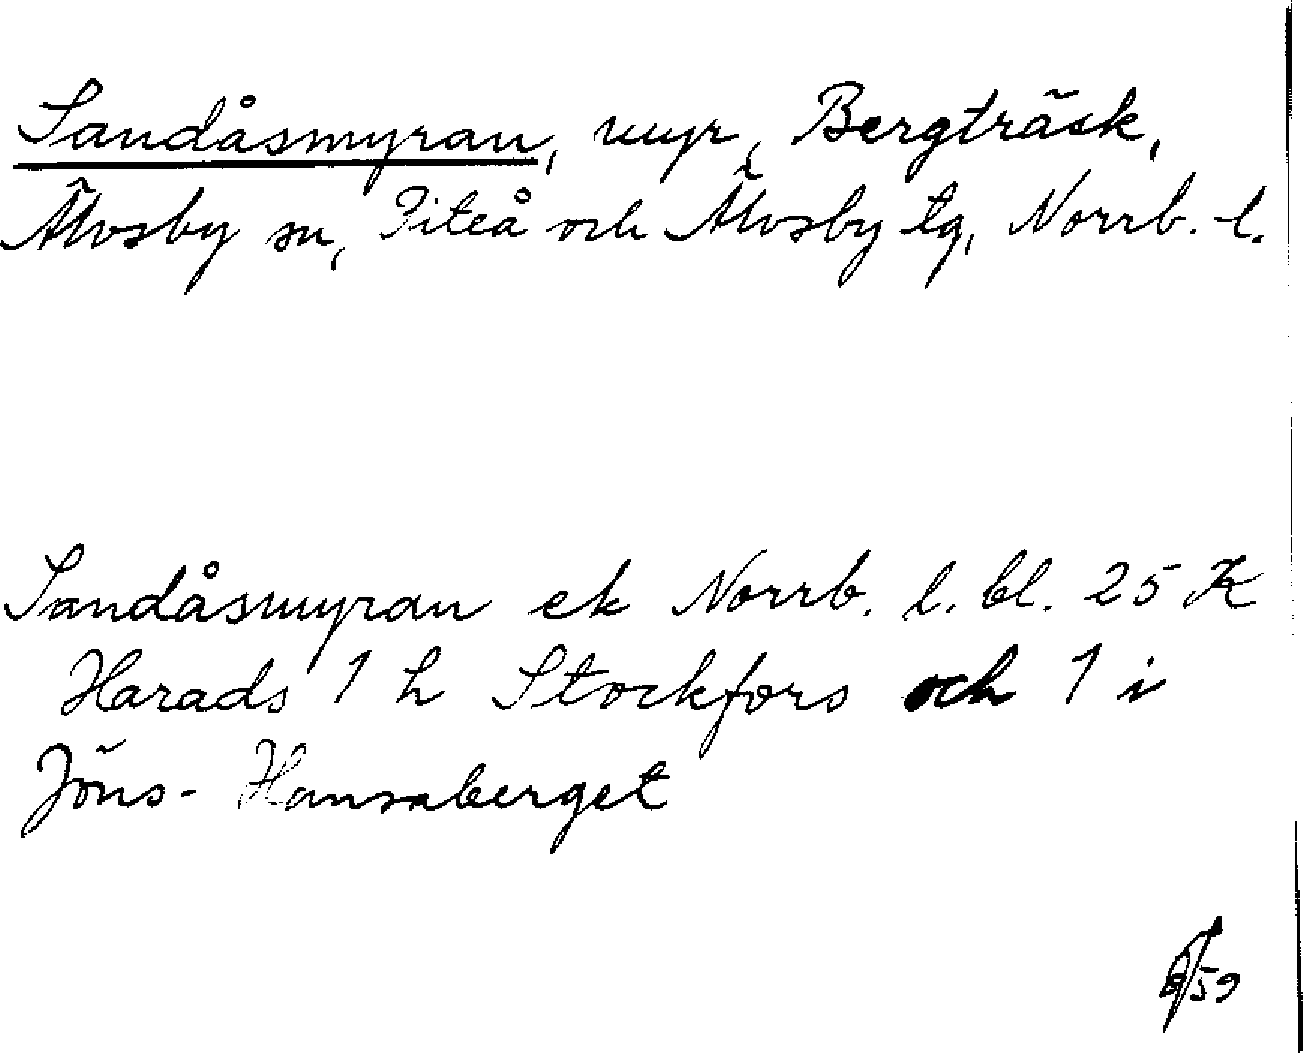 Sandåsmyran, myr, Bergträsk,
Älvsby sn, Piteå och Älvsby tg, Norrb. l.
Sandåsmyran ek Norrb. l. bl. 25 K
Harads 1 h Stockfors och 1 i
Jöns-Hansaberget
59